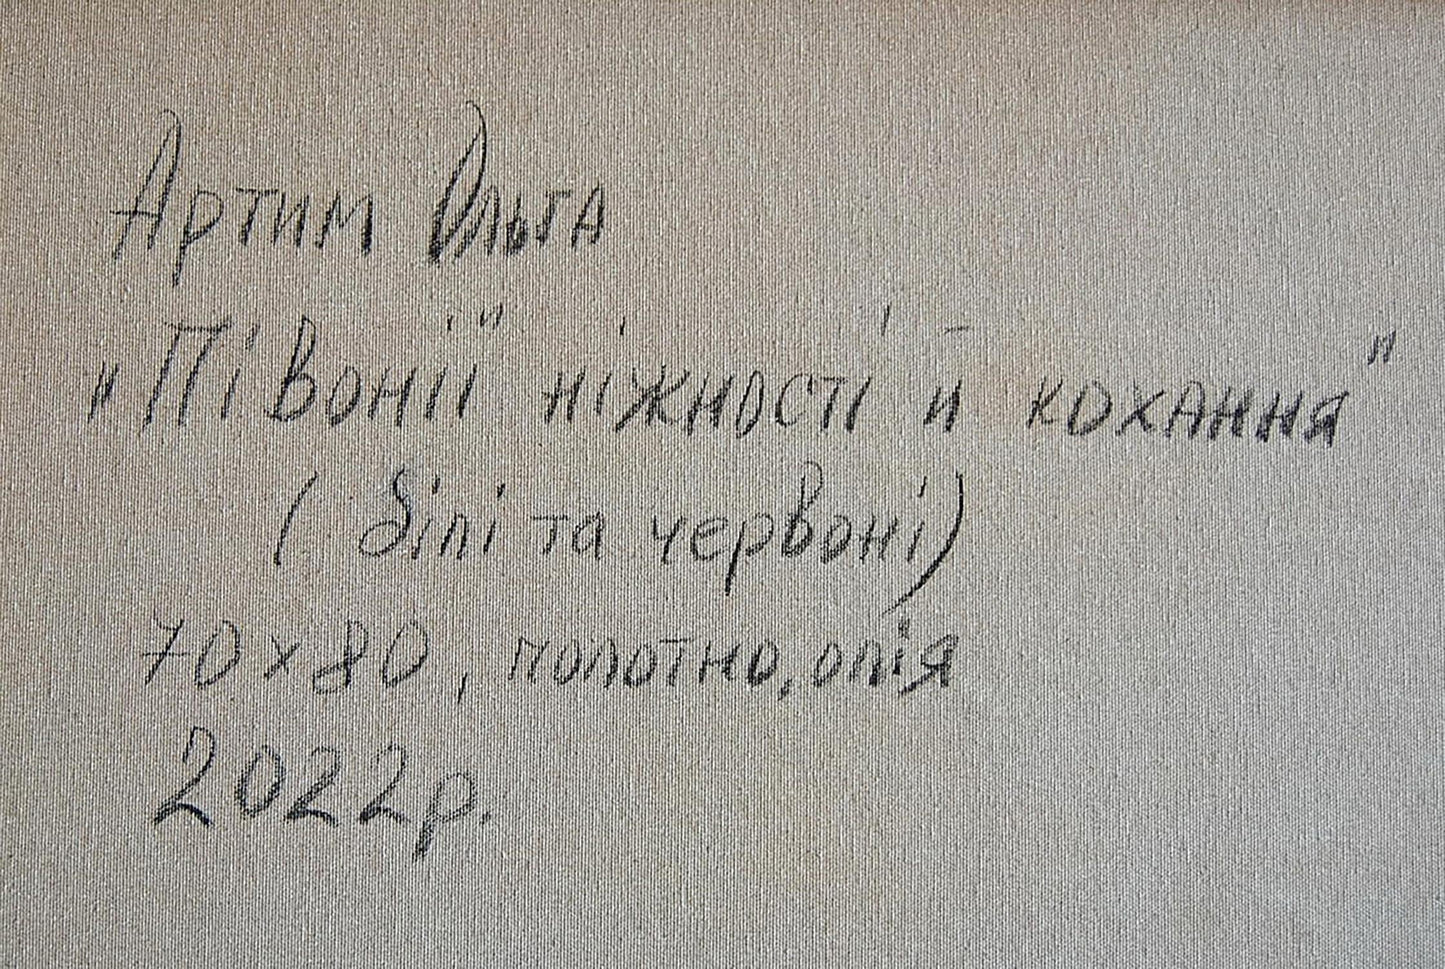 Артим Ольга
"Півонії ніжності й кохання"
(білі та червоні)
70х80, полотно, олія
2022р.